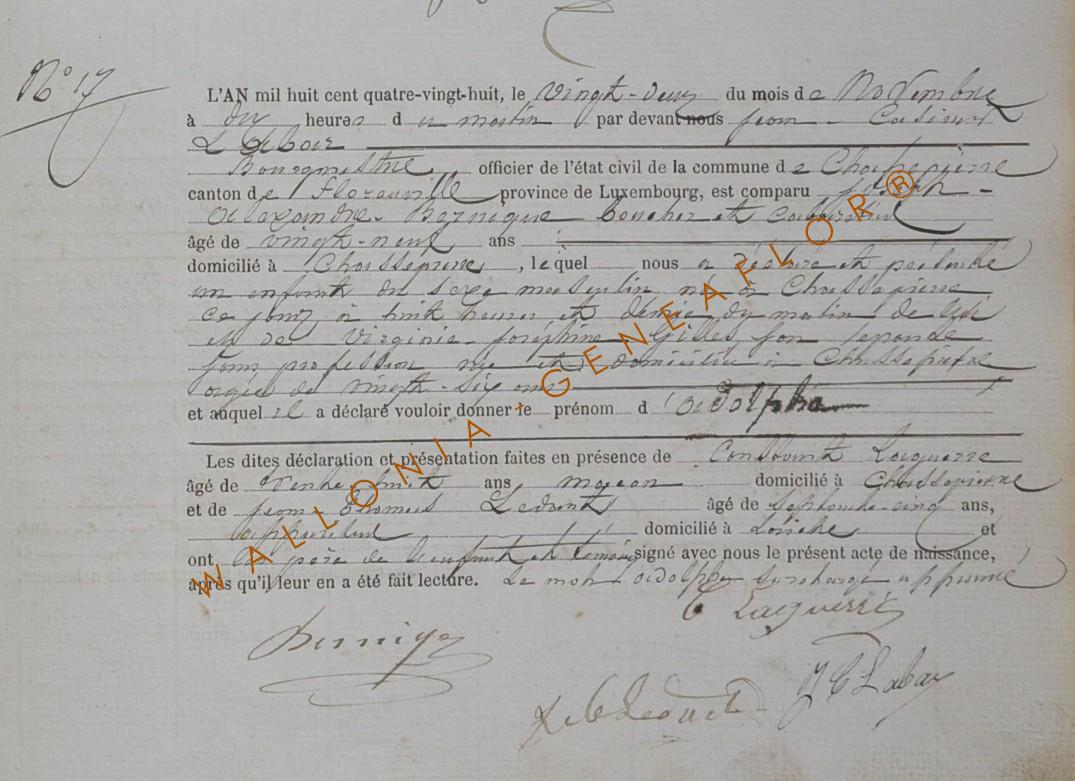 N° 17
L'AN mil huit cent quatre-vingt-huit, le vingt-deux du mois de Novembre
à dix heures du matin par devant nous Jean - Casimir
Labaix
Bourgmestre officier de l'état civil de la commune de Chassepierre
canton de Florenville province de Luxembourg, est comparu Joseph -
Alexandre boucher et cultivateur
âgé de vingt-neuf ans
domicilié à Chassepierre, lequel nous a déclaré et présenté
un enfant du sexe masculin né à Chassepierre
ce jour à huit heures et demie du matin de lui
et de Virginie Joséphine Gilles, son épouse
sans profession née et domiciliée à Chassepierre
âgée de vingt-six ans
et auquel il a déclaré vouloir donner le prénom d'Adolphe
Les dites déclaration et présentation faites en présence de Constant Lacguerre
âgé de trente huit ans maçon domicilié à Chassepierre
et de Jean Thomas âgé de septante-cinq ans,
domicilié à et
ont les père de l'enfant et témoins signé avec nous le présent acte de naissance,
après qu'il leur en a été fait lecture. Le mot Adolphe surchargé approuvé
C Lacguerre
J C Labaix
WALLONIA - GENEAFLOR ®